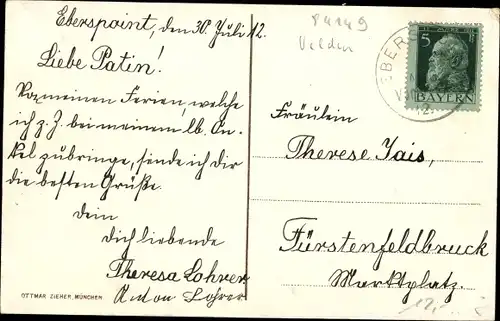 Eberspoint, den 30. Juli 12.
Liebe Patin!
Von meinen Ferien, welche
ich z. Z. bei meinem lb. On-
kel zubringe, sende ich dir
die besten Grüße.
Dein
dich liebende
Theresa Lohrer
Anton Lohrer
OTTMAR ZIEHER, MÜNCHEN
84149
Velden
5 5
BAYERN
EBERS
Fräulein
Therese Jais,
Fürstenfeldbruck
Marktplatz.
12,-